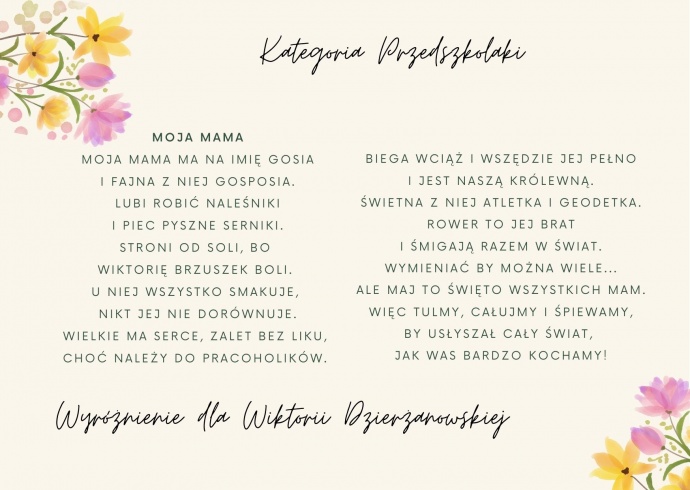 Kategoria Przedszkolaki
MOJA MAMA
MOJA MAMA MA NA IMIĘ GOSIA
I FAJNA Z NIEJ GOSPOSIA.
LUBI ROBIĆ NALEŚNIKI
I PIEC PYSZNE SERNIKI.
STRONI OD SOLI, BO
WIKTORIĘ BRZUSZEK BOLI.
U NIEJ WSZYSTKO SMAKUJE,
NIKT JEJ NIE DORÓWNUJE.
WIELKIE MA SERCE, ZALET BEZ LIKU,
CHOĆ NALEŻY DO PRACOHOLIKÓW.
BIEGA WCIĄŻ I WSZĘDZIE JEJ PEŁNO
I JEST NASZĄ KRÓLEWNĄ.
ŚWIETNA Z NIEJ ATLETKA I GEODETKA.
ROWER TO JEJ BRAT
I ŚMIGAJĄ RAZEM W ŚWIAT.
WYMIENIAĆ BY MOŻNA WIELE...
ALE MAJ TO ŚWIĘTO WSZYSTKICH MAM.
WIĘC TULMY, CAŁUJMY I ŚPIEWAMY,
BY USŁYSZAŁ CAŁY ŚWIAT,
JAK WAS BARDZO KOCHAMY!
Wyróżnienie dla Wiktorii Dzierżanowskiej